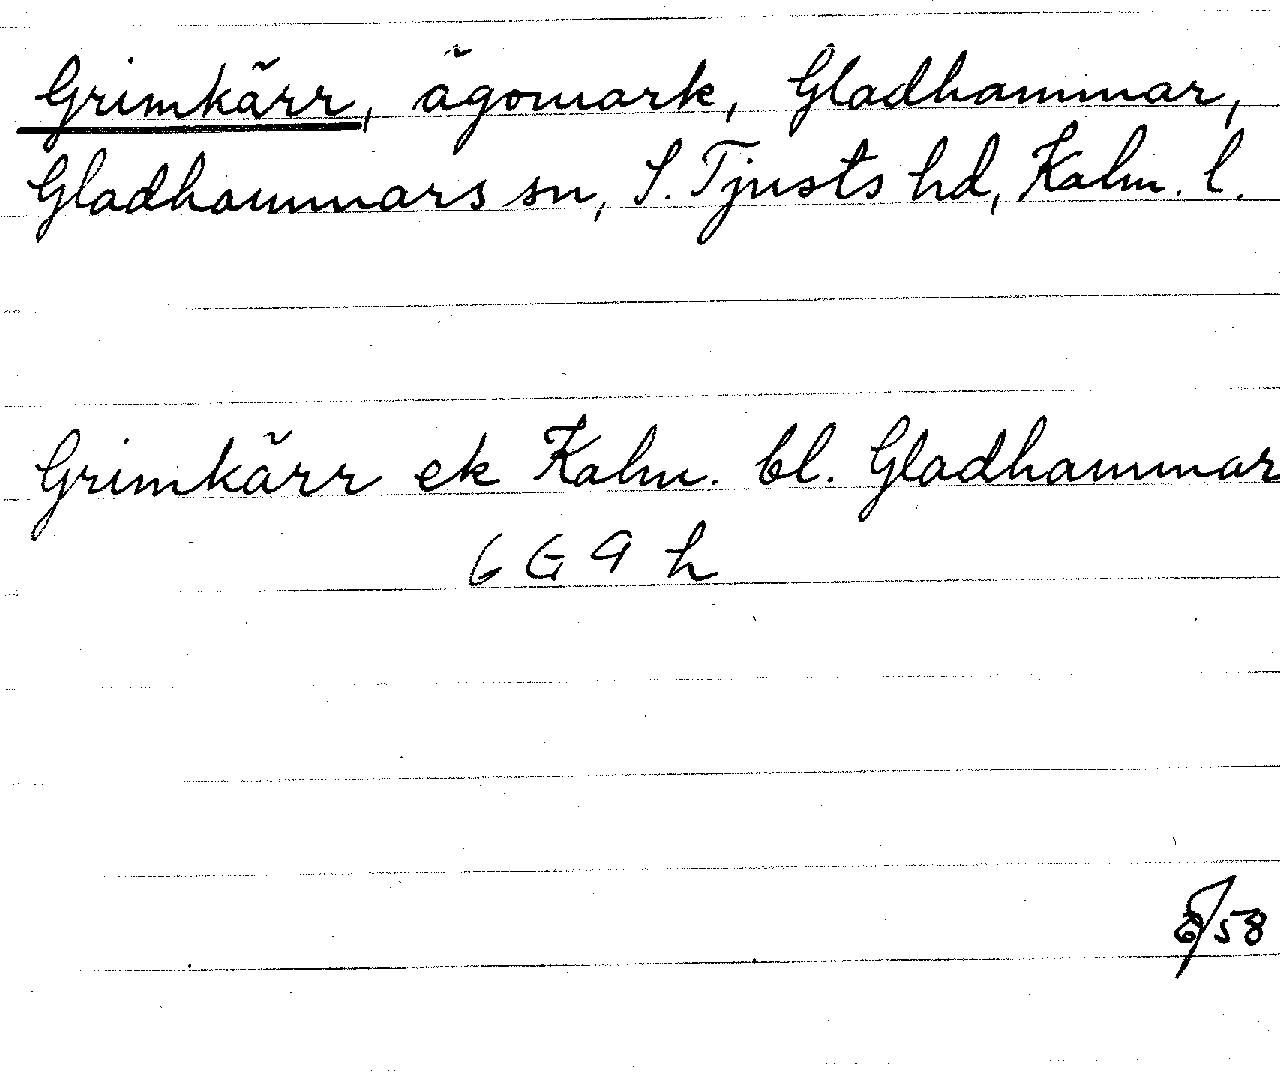 Grimkärr, ägomark, Gladhammar,
Gladhammars sn, S. Tjusts hd, Kalm. l.
Grimkärr ek Kalm. bl. Gladhammar
6 G 9 h
/58